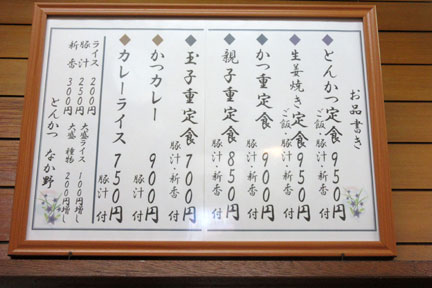 お品書き
とんかつ定食 950円
ご飯・豚汁・新香 付
生姜焼き定食 950円
ご飯・豚汁・新香 付
かつ重定食 900円
豚汁・新香 付
親子重定食 850円
豚汁・新香 付
玉子重定食 700円
豚汁・新香 付
かつカレー 900円
豚汁 付
カレーライス 750円
豚汁 付
ライス 200円 大盛ライス 100円増し
豚汁 250円 大盛 種物 200円増し
新香 300円
とんかつ なか野